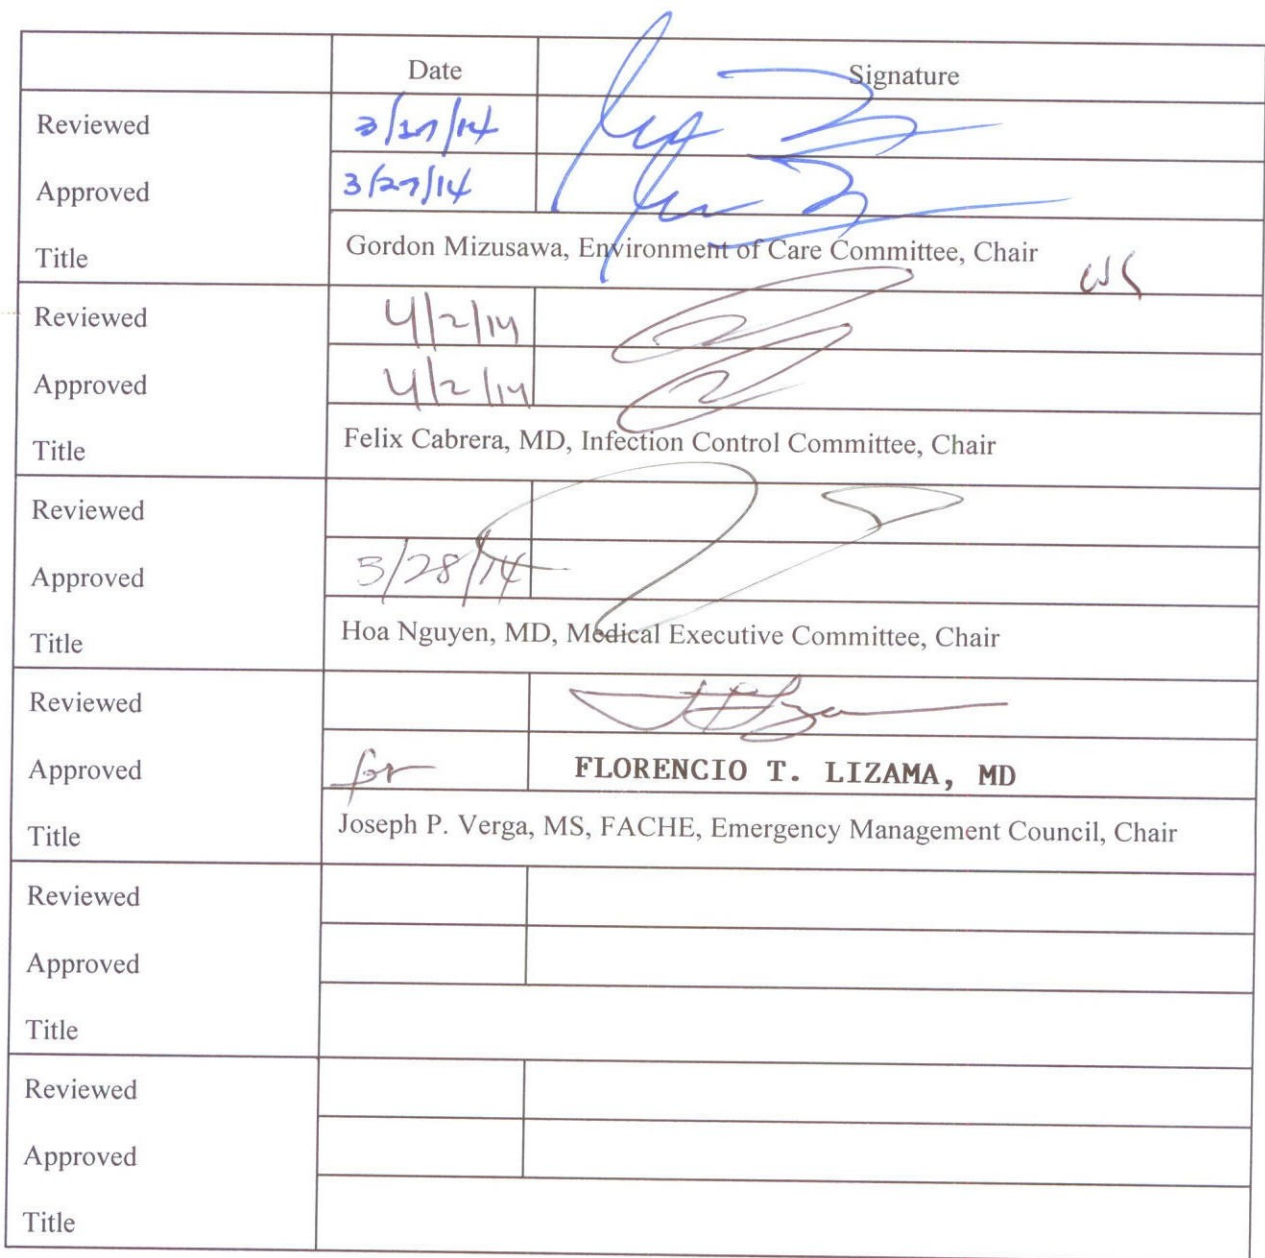 Date Signature
Reviewed 3/27/14
Approved 3/27/14
Title Gordon Mizusawa, Environment of Care Committee, Chair
Reviewed 4/2/14
Approved 4/2/14
Title Felix Cabrera, MD, Infection Control Committee, Chair
Reviewed
Approved 3/28/14
Title Hoa Nguyen, MD, Medical Executive Committee, Chair
Reviewed
Approved for FLORENCIO T. LIZAMA, MD
Title Joseph P. Verga, MS, FACHE, Emergency Management Council, Chair
Reviewed
Approved
Title
Reviewed
Approved
Title